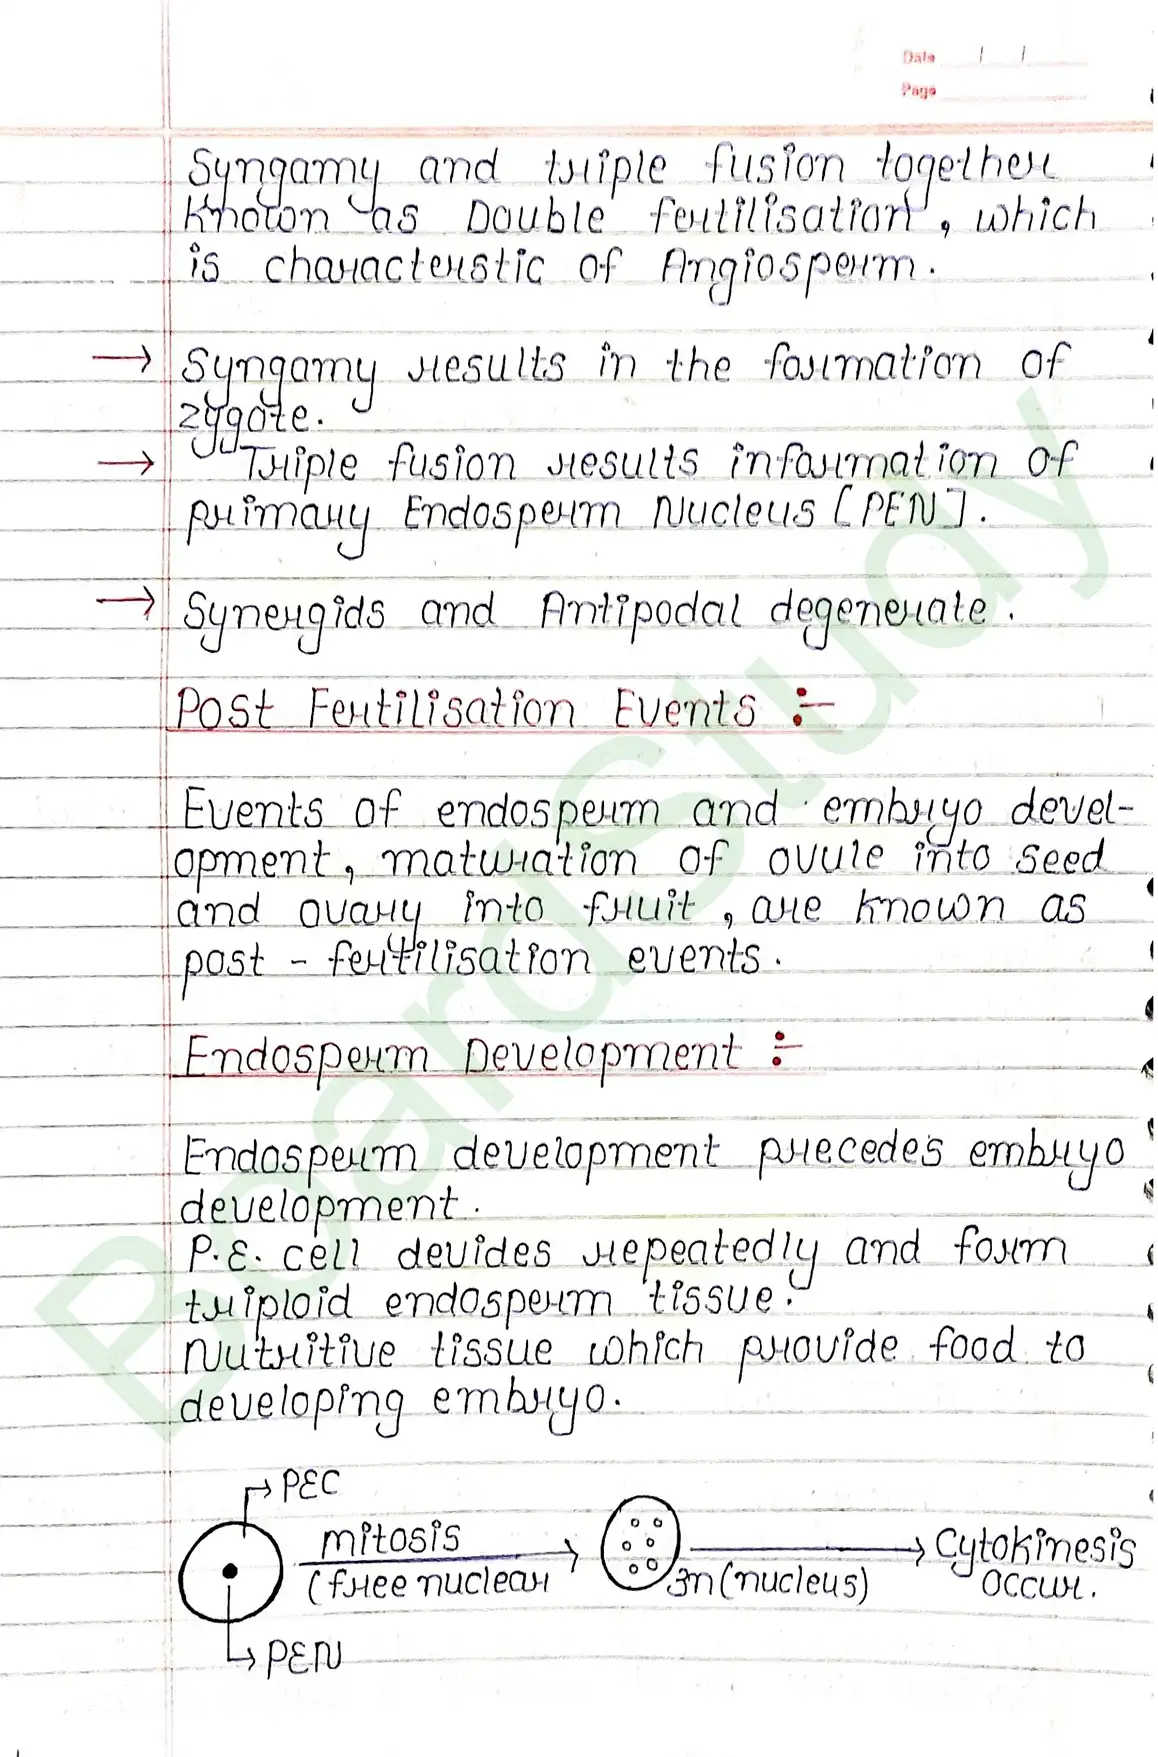 Date / /
Page
Syngamy and triple fusion together
known as Double fertilisation, which
is characterstic of Angiosperm.
→ Syngamy results in the formation of
zygote.
→ Triple fusion results in formation of
primary Endosperm Nucleus [PEN].
→ Synergids and Antipodal degenerate.
Post Fertilisation Events :-
Events of endosperm and embryo devel-
opment, maturation of ovule into seed
and ovary into fruit, are known as
post - fertilisation events.
Endosperm Development :-
Endosperm development precedes embryo
development.
P.E. cell devides repeatedly and form
triploid endosperm tissue.
Nutritive tissue which provide food to
developing embryo.
PEC
mitosis
(free nuclear
3n (nucleus)
Cytokinesis
occur.
PEN
BoardStudy